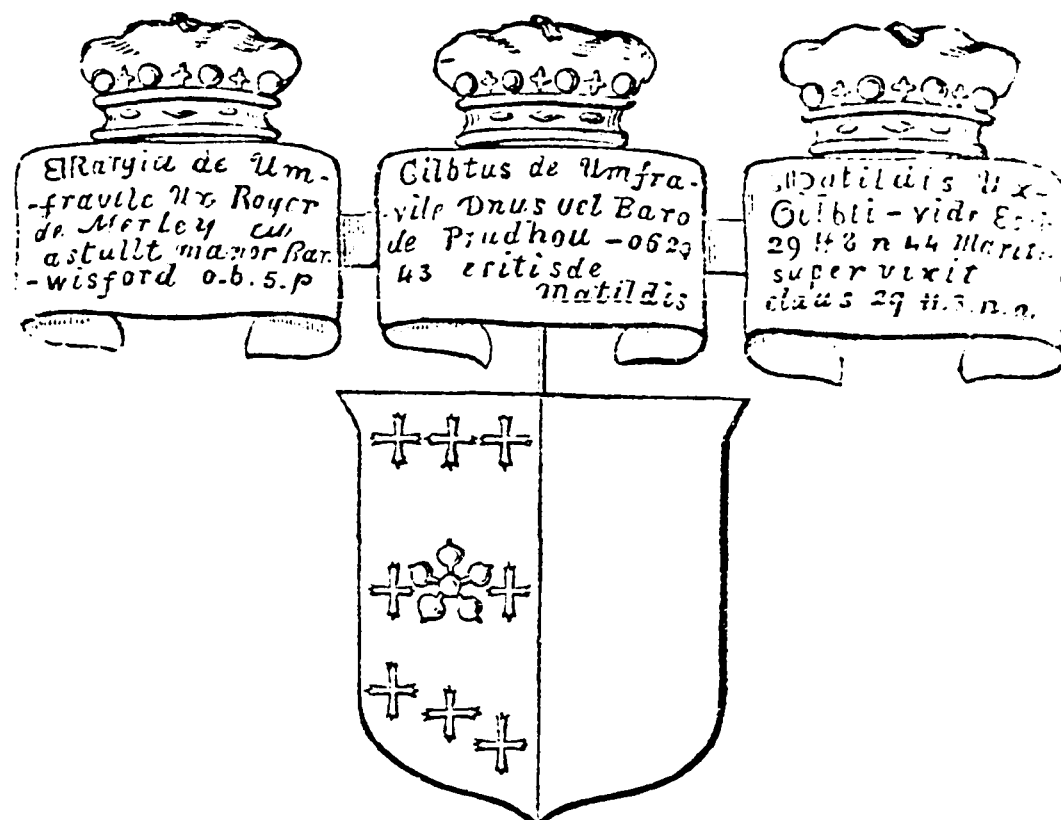 de Um-
-fravile Ux Roger
de Merley cu
astullt manor Bar
-wisford o.b.s.p
Gilbtus de Umfra-
vile Dnus vel Baro
de Prudhou -o629
43 eritisde
matildis
Matildis Ux-
Gilbti - vide
29 H3 n 44 Marit
super vixit
claus 29 H.3.n.a.